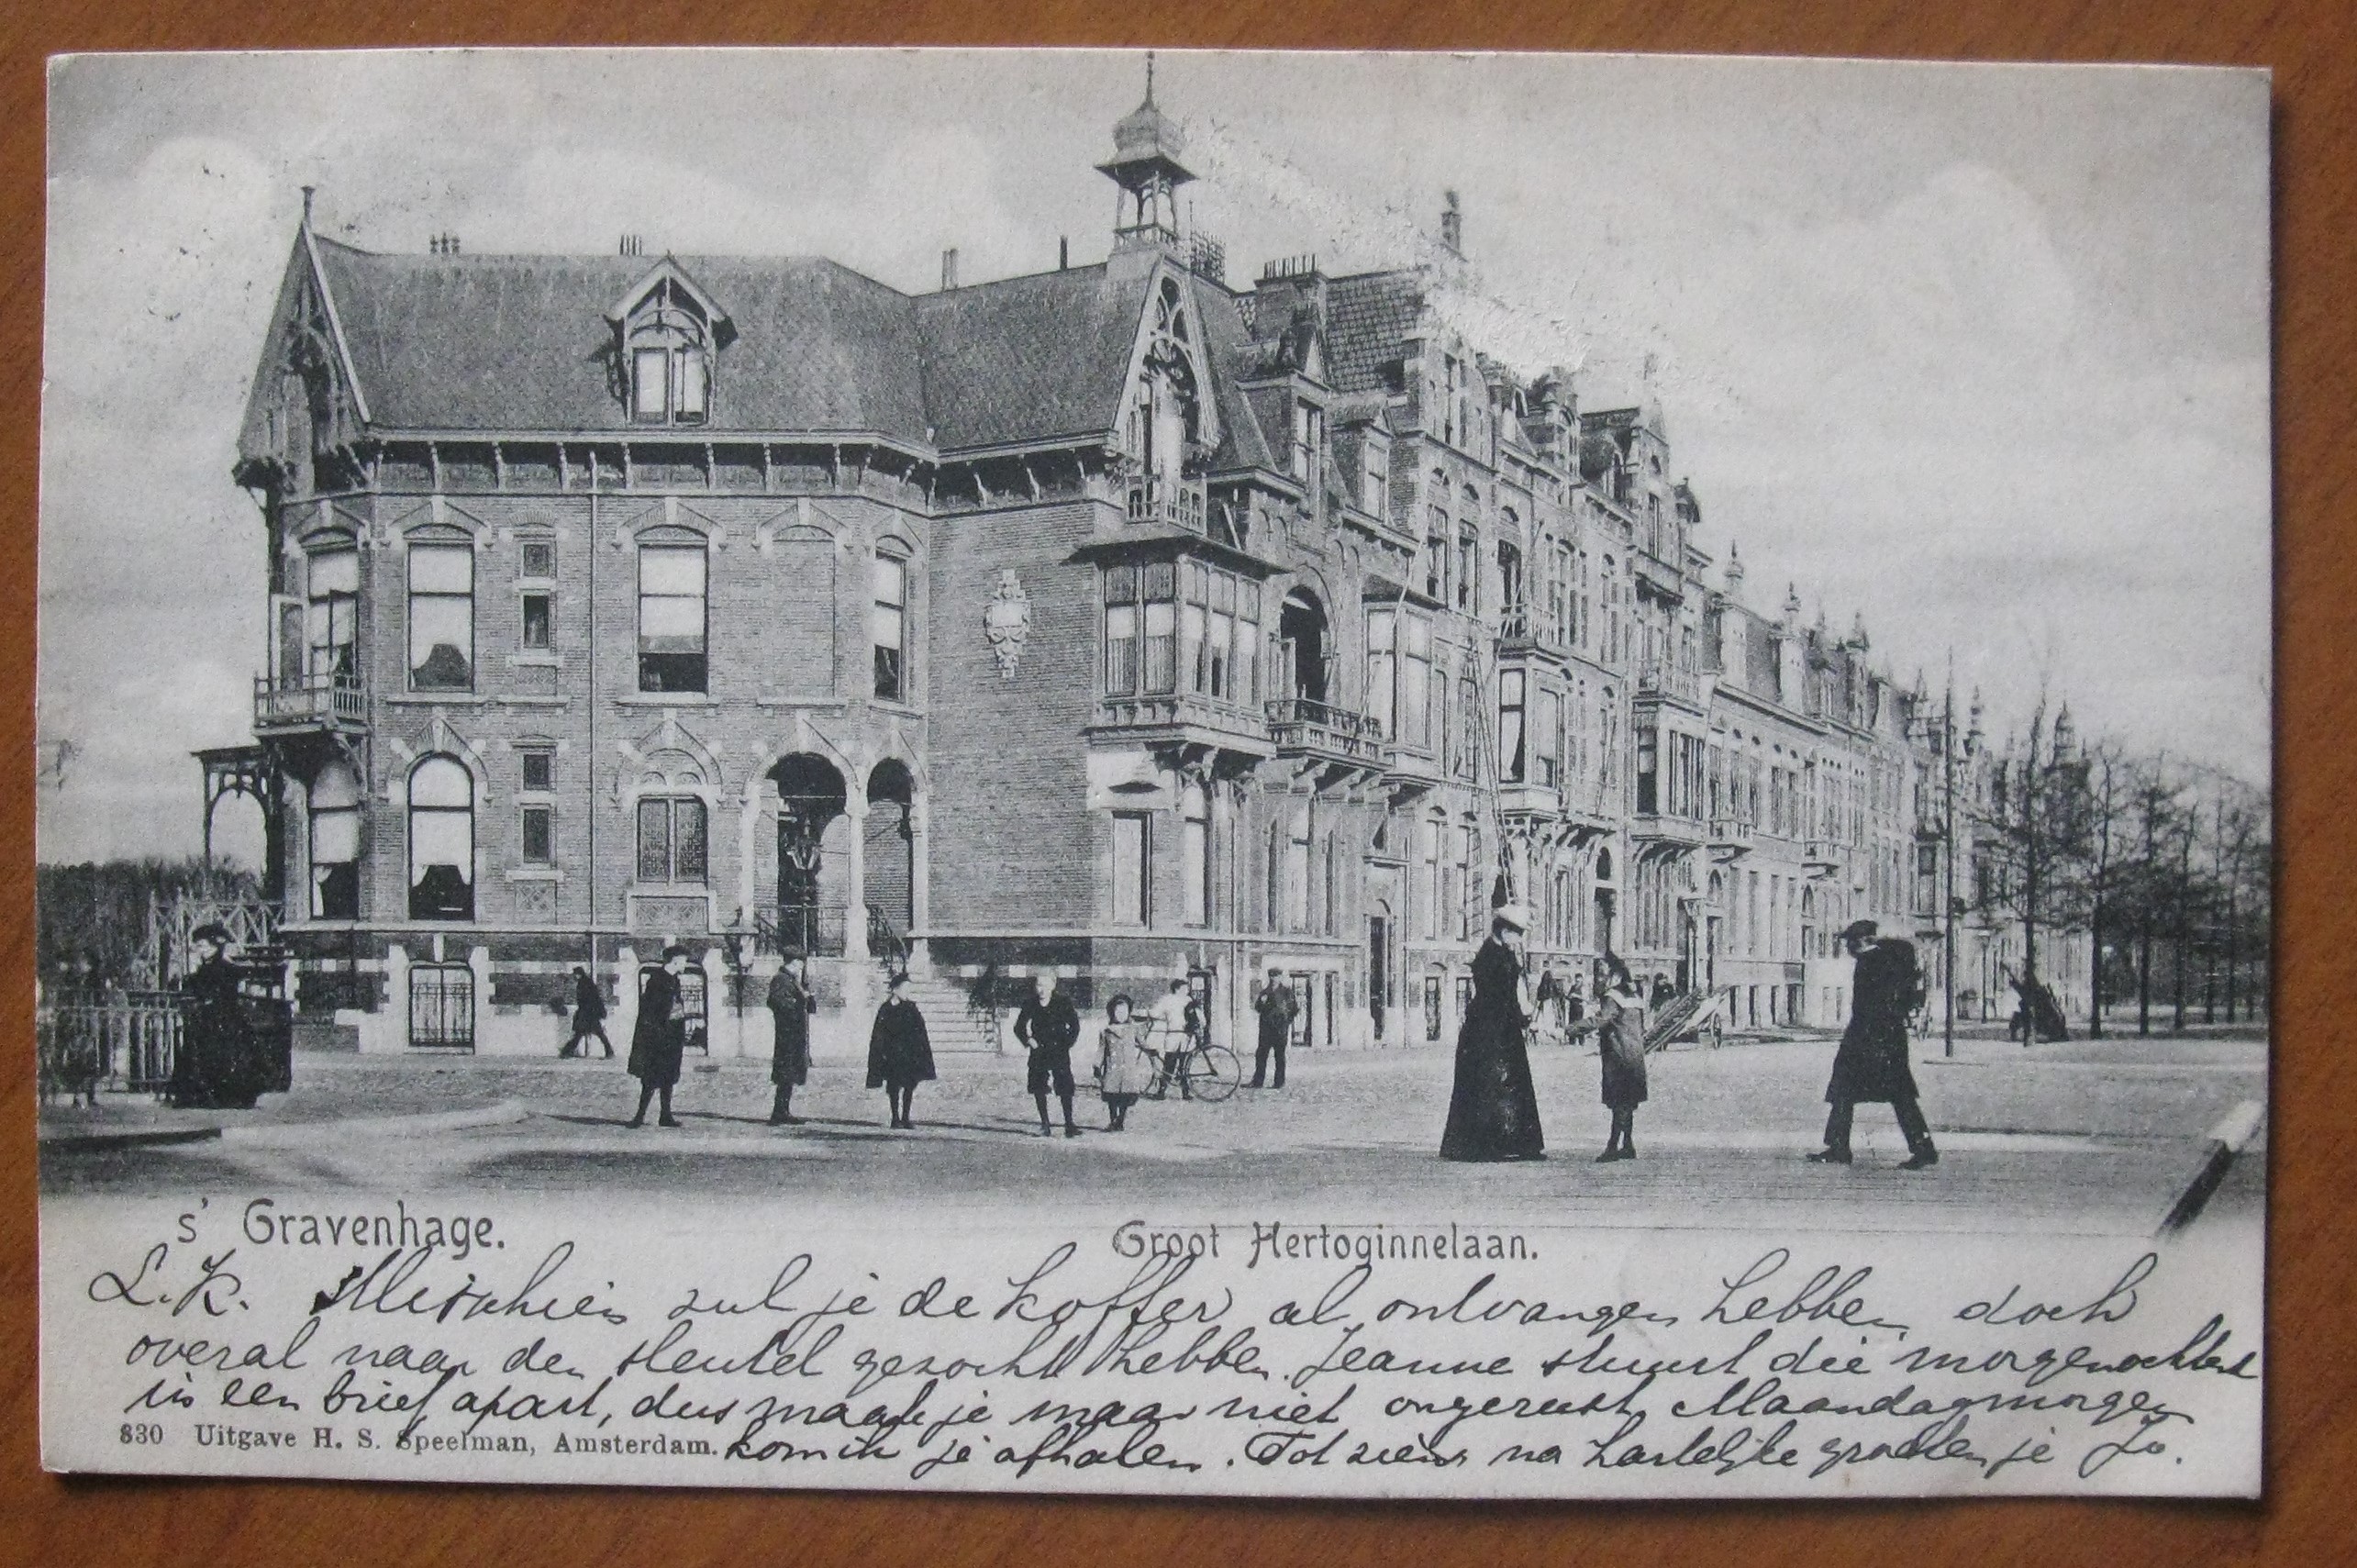 s' Gravenhage.
Groot Hertoginnelaan.
L.K. Misschien zul je de koffer al ontvangen hebben doch
overal naar den sleutel gezocht hebben. Jeanne stuurt die morgenochtend
in een brief apart, dus maak je maar niet ongerust. Maandagmorgen
830 Uitgave H. S. Speelman, Amsterdam.
kom ik je afhalen. Tot ziens na hartelijke groeten je Jo.